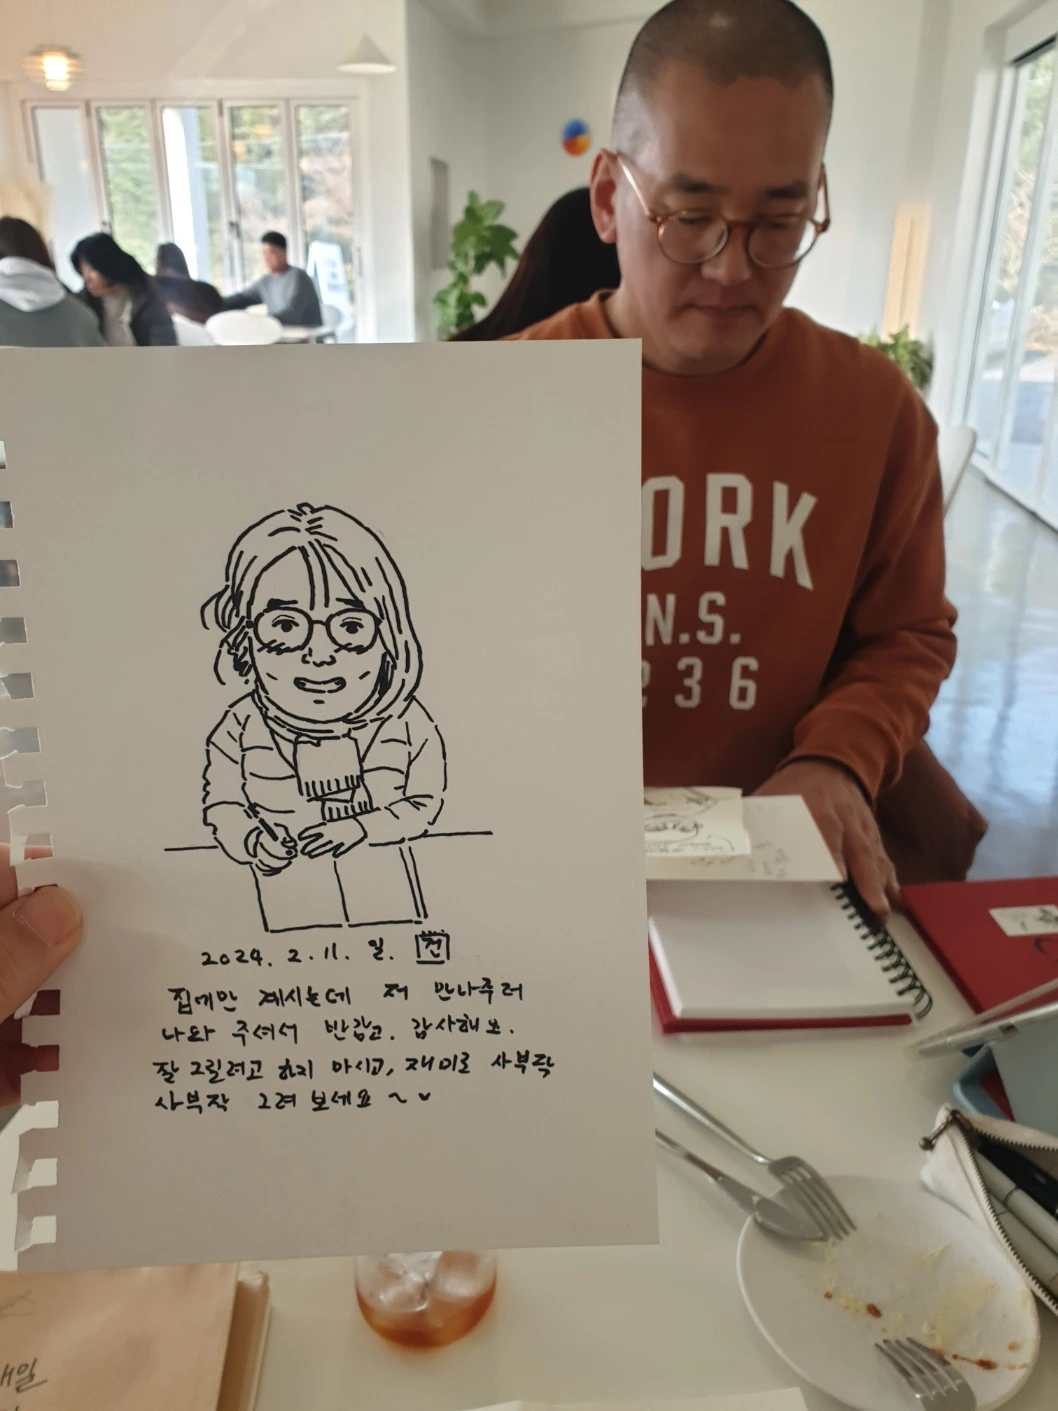 ORK
N.S.
236
2024. 2. 11. 일. 건
집에만 계시는데 저 만나주러
나와 주셔서 반갑고. 감사해요.
잘 그릴려고 하지 마시고, 재미로 사부작
사부작 그려 보세요 ~